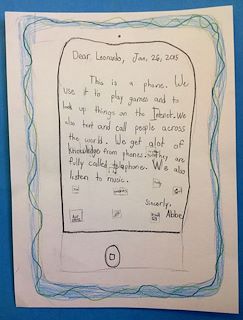 Dear, Leonardo, Jan, 26, 2015
This is a phone. We
use it to play games and to
look up things on the Internet. We
also text and call people across
the world. We get alot of
knowledge from phones. They are
fully called telaphone. We also
listen to music.
Sincerly,
Abbe